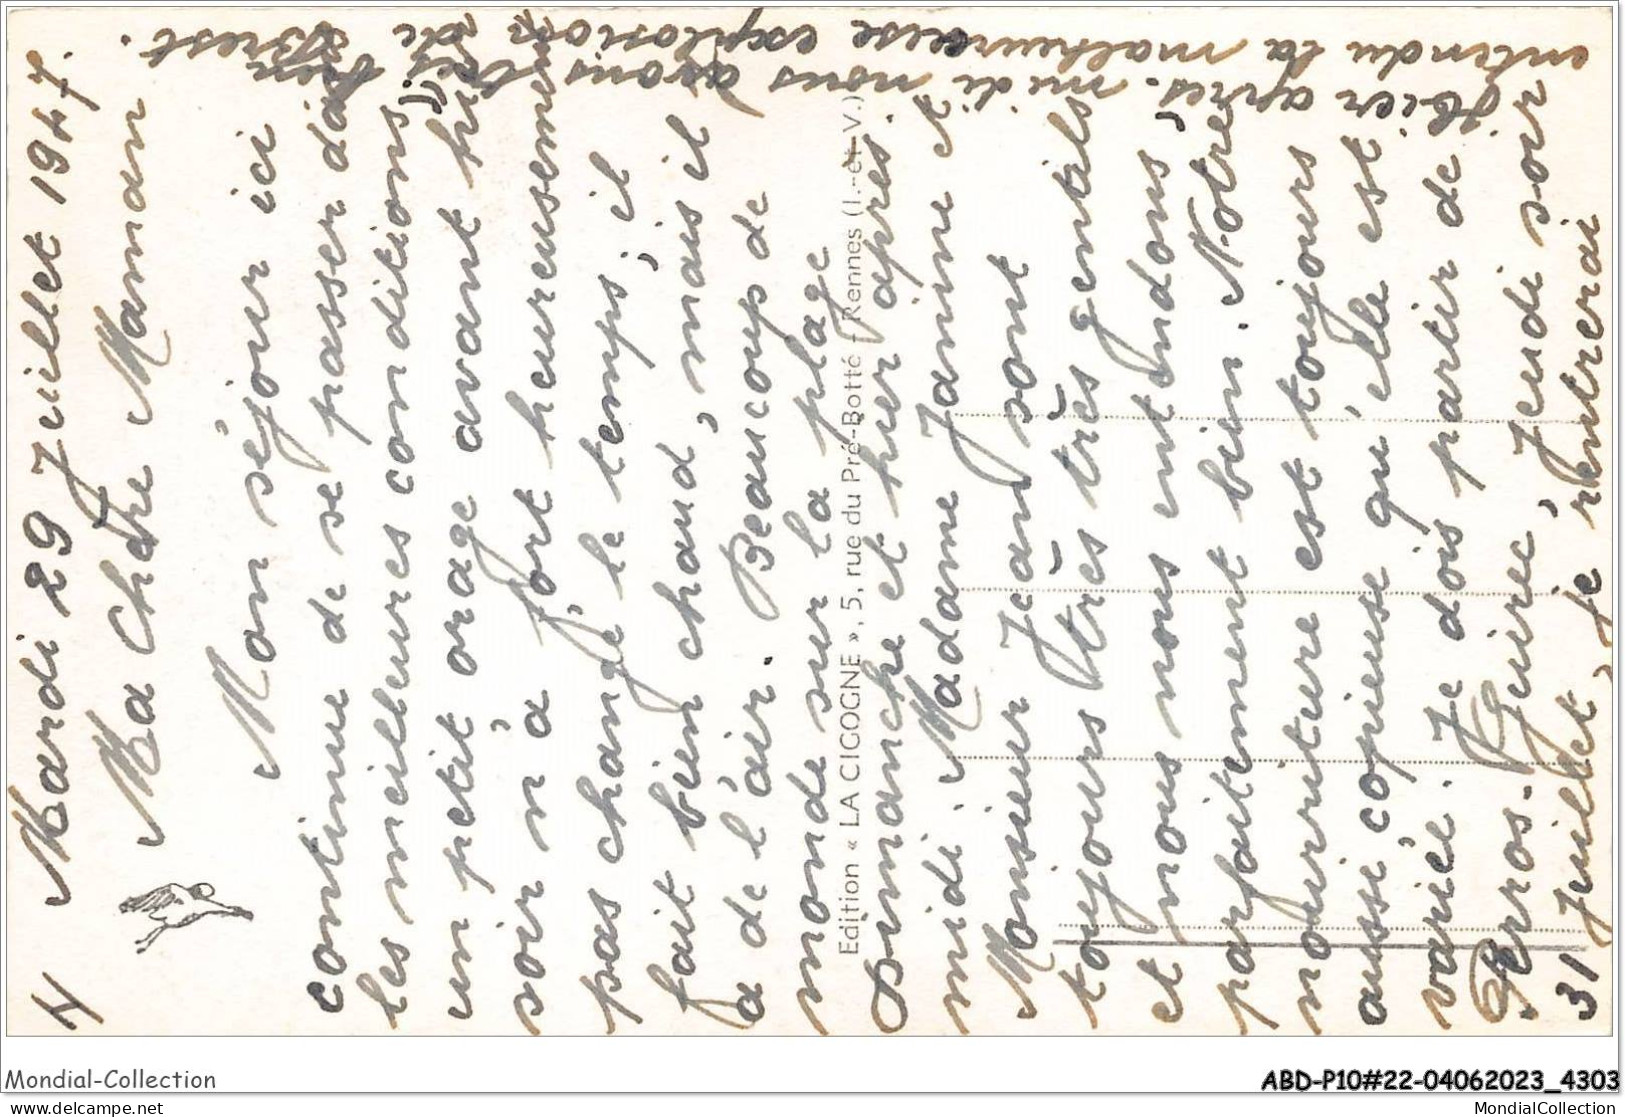 4
Mardi 29 Juillet 1947.
Ma Chère Maman
Mon séjour ici
continue de se passer dans
les meilleures conditions,
un petit orage avant hier
soir n'a fort heureusement
pas changé le temps, il
fait bien chaud, mais il y
a de l'air. Beaucoup de
monde sur la plage
Dimanche et hier après
midi. Madame Janine et
Monsieur Jean sont
toujours très très gentils
et nous nous entendons
parfaitement bien. Notre
nourriture est toujours
aussi copieuse qu'elle est
variée. Je dois partir de
Perros-Guirec, Jeudi soir
31 Juillet, je rentrerai
Hier après-midi nous avons très bien
entendu la malheureuse explosion de
Brest.
Edition « LA CIGOGNE », 5, rue du Pré-Botté - Rennes (I.-et-V.)
Mondial-Collection
ABD-P10#22-04062023_4303
www.delcampe.net
MondialCollection